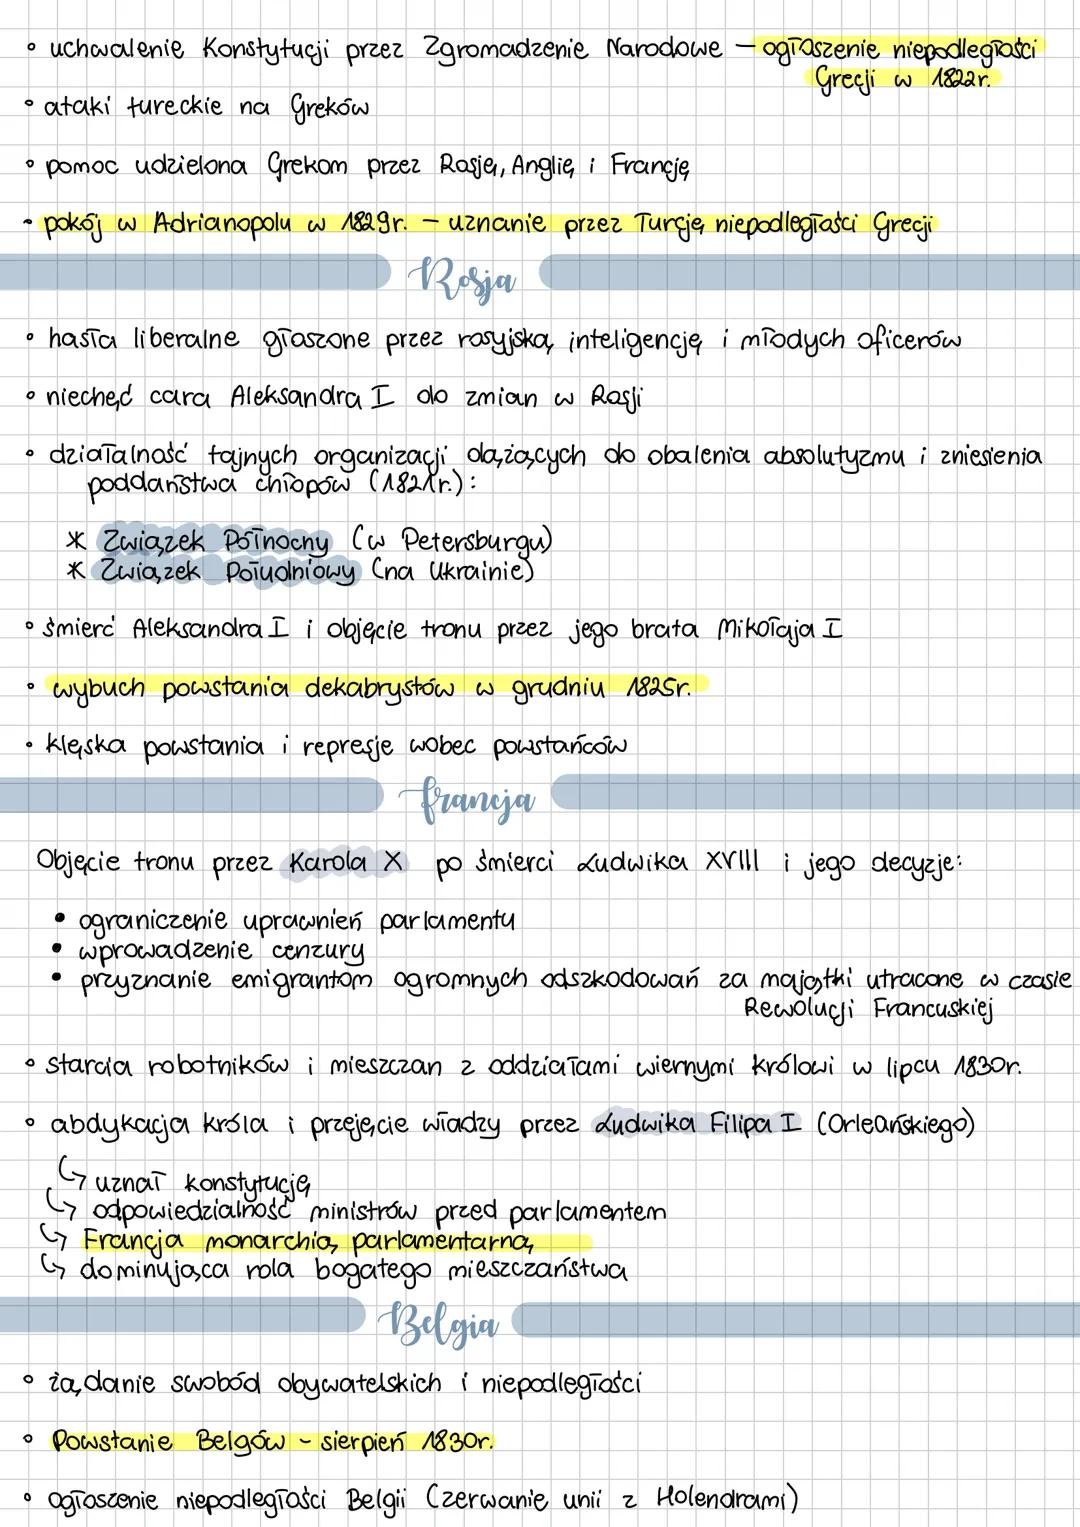 • uchwalenie Konstytucji przez Zgromadzenie Narodowe – ogłoszenie niepodległości
Grecji w 1822r.
• ataki tureckie na Greków
• pomoc udzielona Grekom przez Rosję, Anglię i Francję
- pokój w Adrianopolu w 1829r. – uznanie przez Turcję niepodległości Grecji
Rosja
• hasła liberalne głoszone przez rosyjską inteligencję i młodych oficerów
• niechęć cara Aleksandra I do zmian w Rosji
• działalność tajnych organizacji dążących do obalenia absolutyzmu i zniesienia
poddaństwa chłopów (1821r.):
* Związek Północny (w Petersburgu)
* Związek Południowy (na Ukrainie)
• śmierć Aleksandra I i objęcie tronu przez jego brata Mikołaja I
• wybuch powstania dekabrystów w grudniu 1825r.
• klęska powstania i represje wobec powstańców
francja
Objęcie tronu przez Karola X po śmierci Ludwika XVIII i jego decyzje:
• ograniczenie uprawnień parlamentu
• wprowadzenie cenzury
• przyznanie emigrantom ogromnych odszkodowań za majątki utracone w czasie
Rewolucji Francuskiej
• starcia robotników i mieszczan z oddziałami wiernymi królowi w lipcu 1830r.
• abdykacja króla i przejęcie władzy przez Ludwika Filipa I (Orleańskiego)
↳ uznał konstytucję
↳ odpowiedzialność ministrów przed parlamentem
↳ Francja monarchią parlamentarną
↳ dominująca rola bogatego mieszczaństwa
Belgia
• żądanie swobód obywatelskich i niepodległości
• Powstanie Belgów - sierpień 1830r.
• ogłoszenie niepodległości Belgii (zerwanie unii z Holendrami)